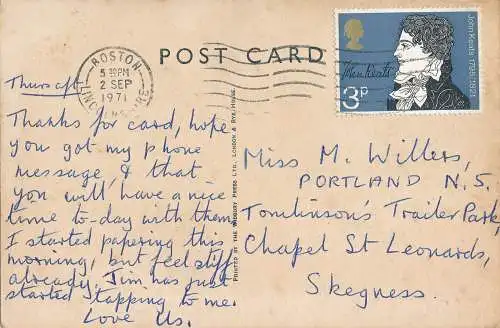 POST CARD
BOSTON
5 30PM
2 SEP
1971
LINCOLNSHIRE
John Keats 1795-1821
John Keats
3P
Thurs aft-
Thanks for card, hope
you got my phone
message & that
you will have a nice
time to-day with them
I started papering this
morning, but feel stiff
already. Jim has just
started tapping to me.
Love Us.
PRINTED BY THE THOUGHT PRESS LTD., LONDON & RYE, HOUSE.
Miss M. Willers,
PORTLAND N.S.
Tomlinson's Trailer Park,
Chapel St Leonards,
Skegness.